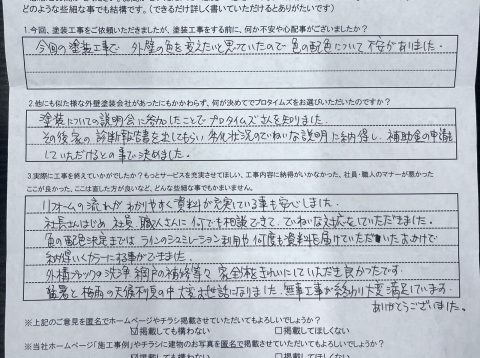 どのような些細な事でも結構です。（できるだけ詳しく書いていただけるとありがたいです）
1.今回、塗装工事をご依頼いただきましたが、塗装工事をする前に、何か不安や心配事がございましたか？
今回の塗装工事で 外壁の色を変えたいと思っていたので 色の配色について不安がありました。
2.他にも似た様な外壁塗装会社があったにもかかわらず、何が決めてでプロタイムズをお選びいただいたのですか？
塗装についての説明会に参加したことでプロタイムズさんを知りました。
その後家の診断報告書を出してもらい 劣化状況のていねいな説明に納得し、補助金の申請も
していただけるとの事で決めました。
3.実際に工事を終えていかがでしたか？もっとサービスを充実させてほしい、工事内容に納得がいかなかった、社員・職人のマナーが悪かった
ここが良かった、ここは直した方が良いなど、どんな些細な事でもかまいません。
リフォームの流れがわかりやすく資料が充実している事も安心しました。
社長さんはじめ 社員、職人さんに何でも相談できて、ていねいな対応をしていただきました。
色の配色決定までは ラインのシミュレーション利用や何度も資料を届けていただいたおかげで
納得いくカラーにする事ができました。
外構ブロックの洗浄 網戸の補修等々 家全体をきれいにしていただき良かったです。
猛暑と梅雨の天候不良の中 大変お世話になりました。無事工事が終わり大変満足しています。
ありがとうございました。
※上記のご意見を匿名でホームページやチラシ掲載させていただいてもよろしいでしょうか？
☑掲載しても構わない □掲載してほしくない
※当社ホームページ「施工事例」やチラシに建物のお写真を匿名で掲載させていただいてもよろしいでしょうか？
☑掲載しても構わない □掲載してほしくない